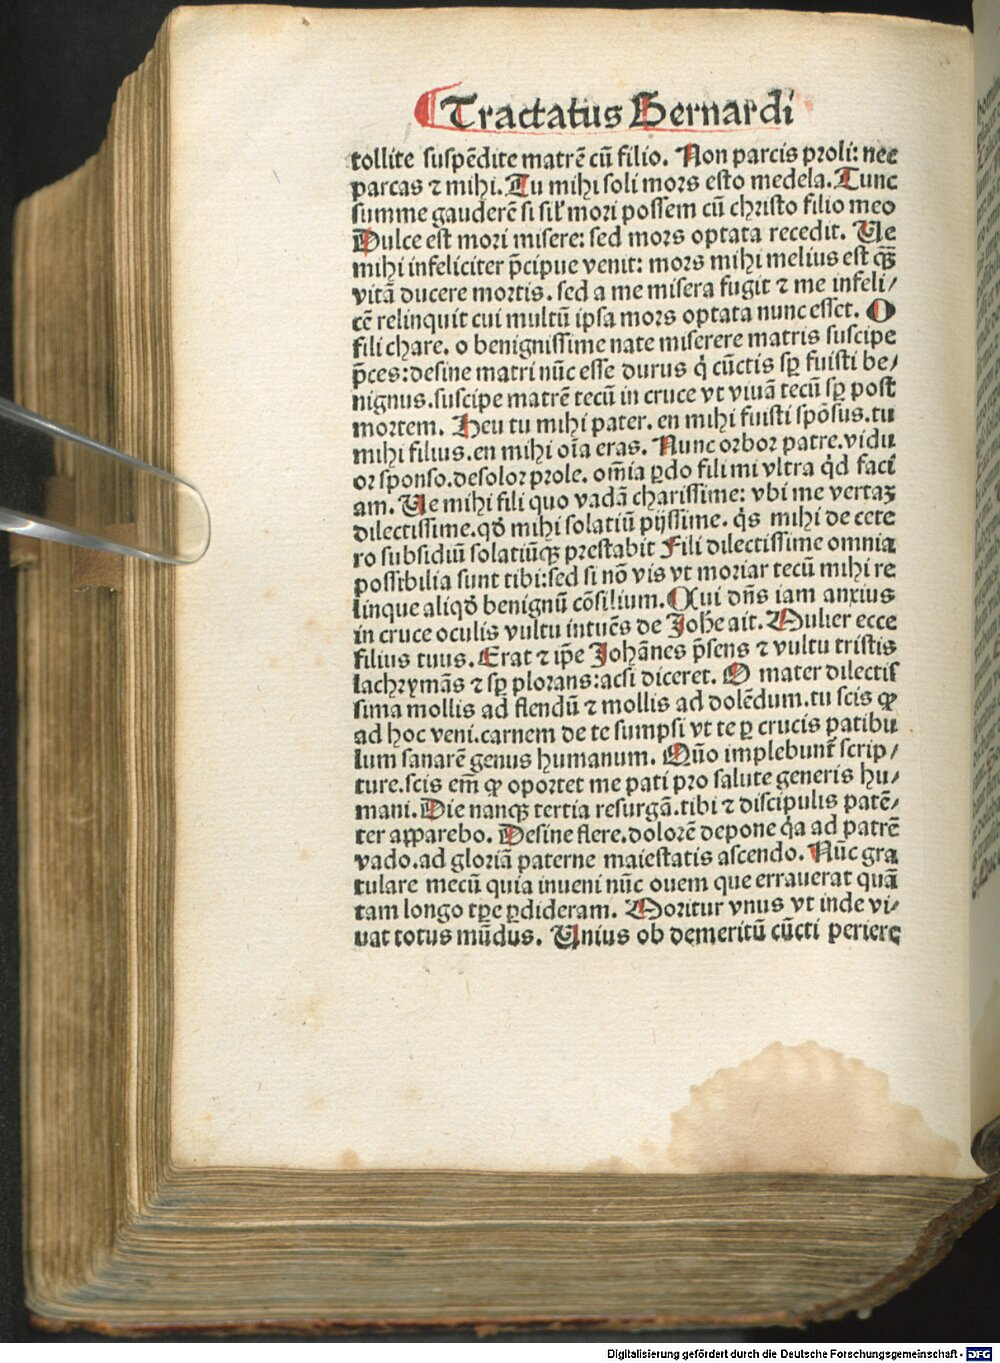 Tractatus Bernardi
tollite suspēdite matrē cū filio. Non parcis proli: nec
parcas ⁊ mihi. Tu mihi soli mors esto medela. Tunc
summe gauderē si sil' mori possem cū christo filio meo
Dulce est mori misere: sed mors optata recedit. Ve
mihi infeliciter p̄cipue venit: mors mihi melius est qꝫ̄
vitā ducere mortis. sed a me misera fugit ⁊ me infeli/
cē relinquit cui multū ipsa mors optata nunc esset. O
fili chare. o benignissime nate miserere matris suscipe
p̄ces: desine matri nūc esse durus q̇ cūctis sꝑ fuisti be/
nignus. suscipe matrē tecū in cruce vt viuā tecū sꝑ post
mortem. Heu tu mihi pater. en mihi fuisti spōsus. tu
mihi filius. en mihi oīa eras. Nunc orbor patre. vidu
or sponso. desolor prole. om̄ia ꝑdo fili mi vltra q̇d faci
am. Ve mihi fili quo vadā charissime: vbi me vertaꝫ
dilectissime. qd̄ mihi solatiū pijssime. q̇s mihi de cete
ro subsidiū solatiūqꝫ prestabit Fili dilectissime omnia
possibilia sunt tibi: sed si nō vis vt moriar tecū mihi re
linque aliqd̄ benignū cōsilium. Qui dn̄s iam anxius
in cruce oculis vultu intuēs de Joh̄e ait. Mulier ecce
filius tuus. Erat ⁊ ip̄e Johānes p̄sens ⁊ vultu tristis
lachrymās ⁊ sꝑ plorans: acsi diceret. O mater dilectis
sima mollis ad flendū ⁊ mollis ad dolēdum. tu scis ꝙ
ad hoc veni. carnem de te sumpsi vt te ꝑ crucis patibu
lum sanarē genus humanum. Quō implebunt̄ scrip/
ture. scis em̄ ꝙ oportet me pati pro salute generis hu/
mani. Die nanqꝫ tertia resurgā. tibi ⁊ discipulis patē/
ter apparebo. Desine flere. dolorē depone q̇a ad patrē
vado. ad gloriā paterne maiestatis ascendo. Nūc gra
tulare mecū quia inueni nūc ouem que errauerat quā
tam longo tꝑe ꝑdideram. Moritur vnus vt inde vi/
uat totus mūdus. Vnius ob demeritū cūcti periere
Digitalisierung gefördert durch die Deutsche Forschungsgemeinschaft - DFG